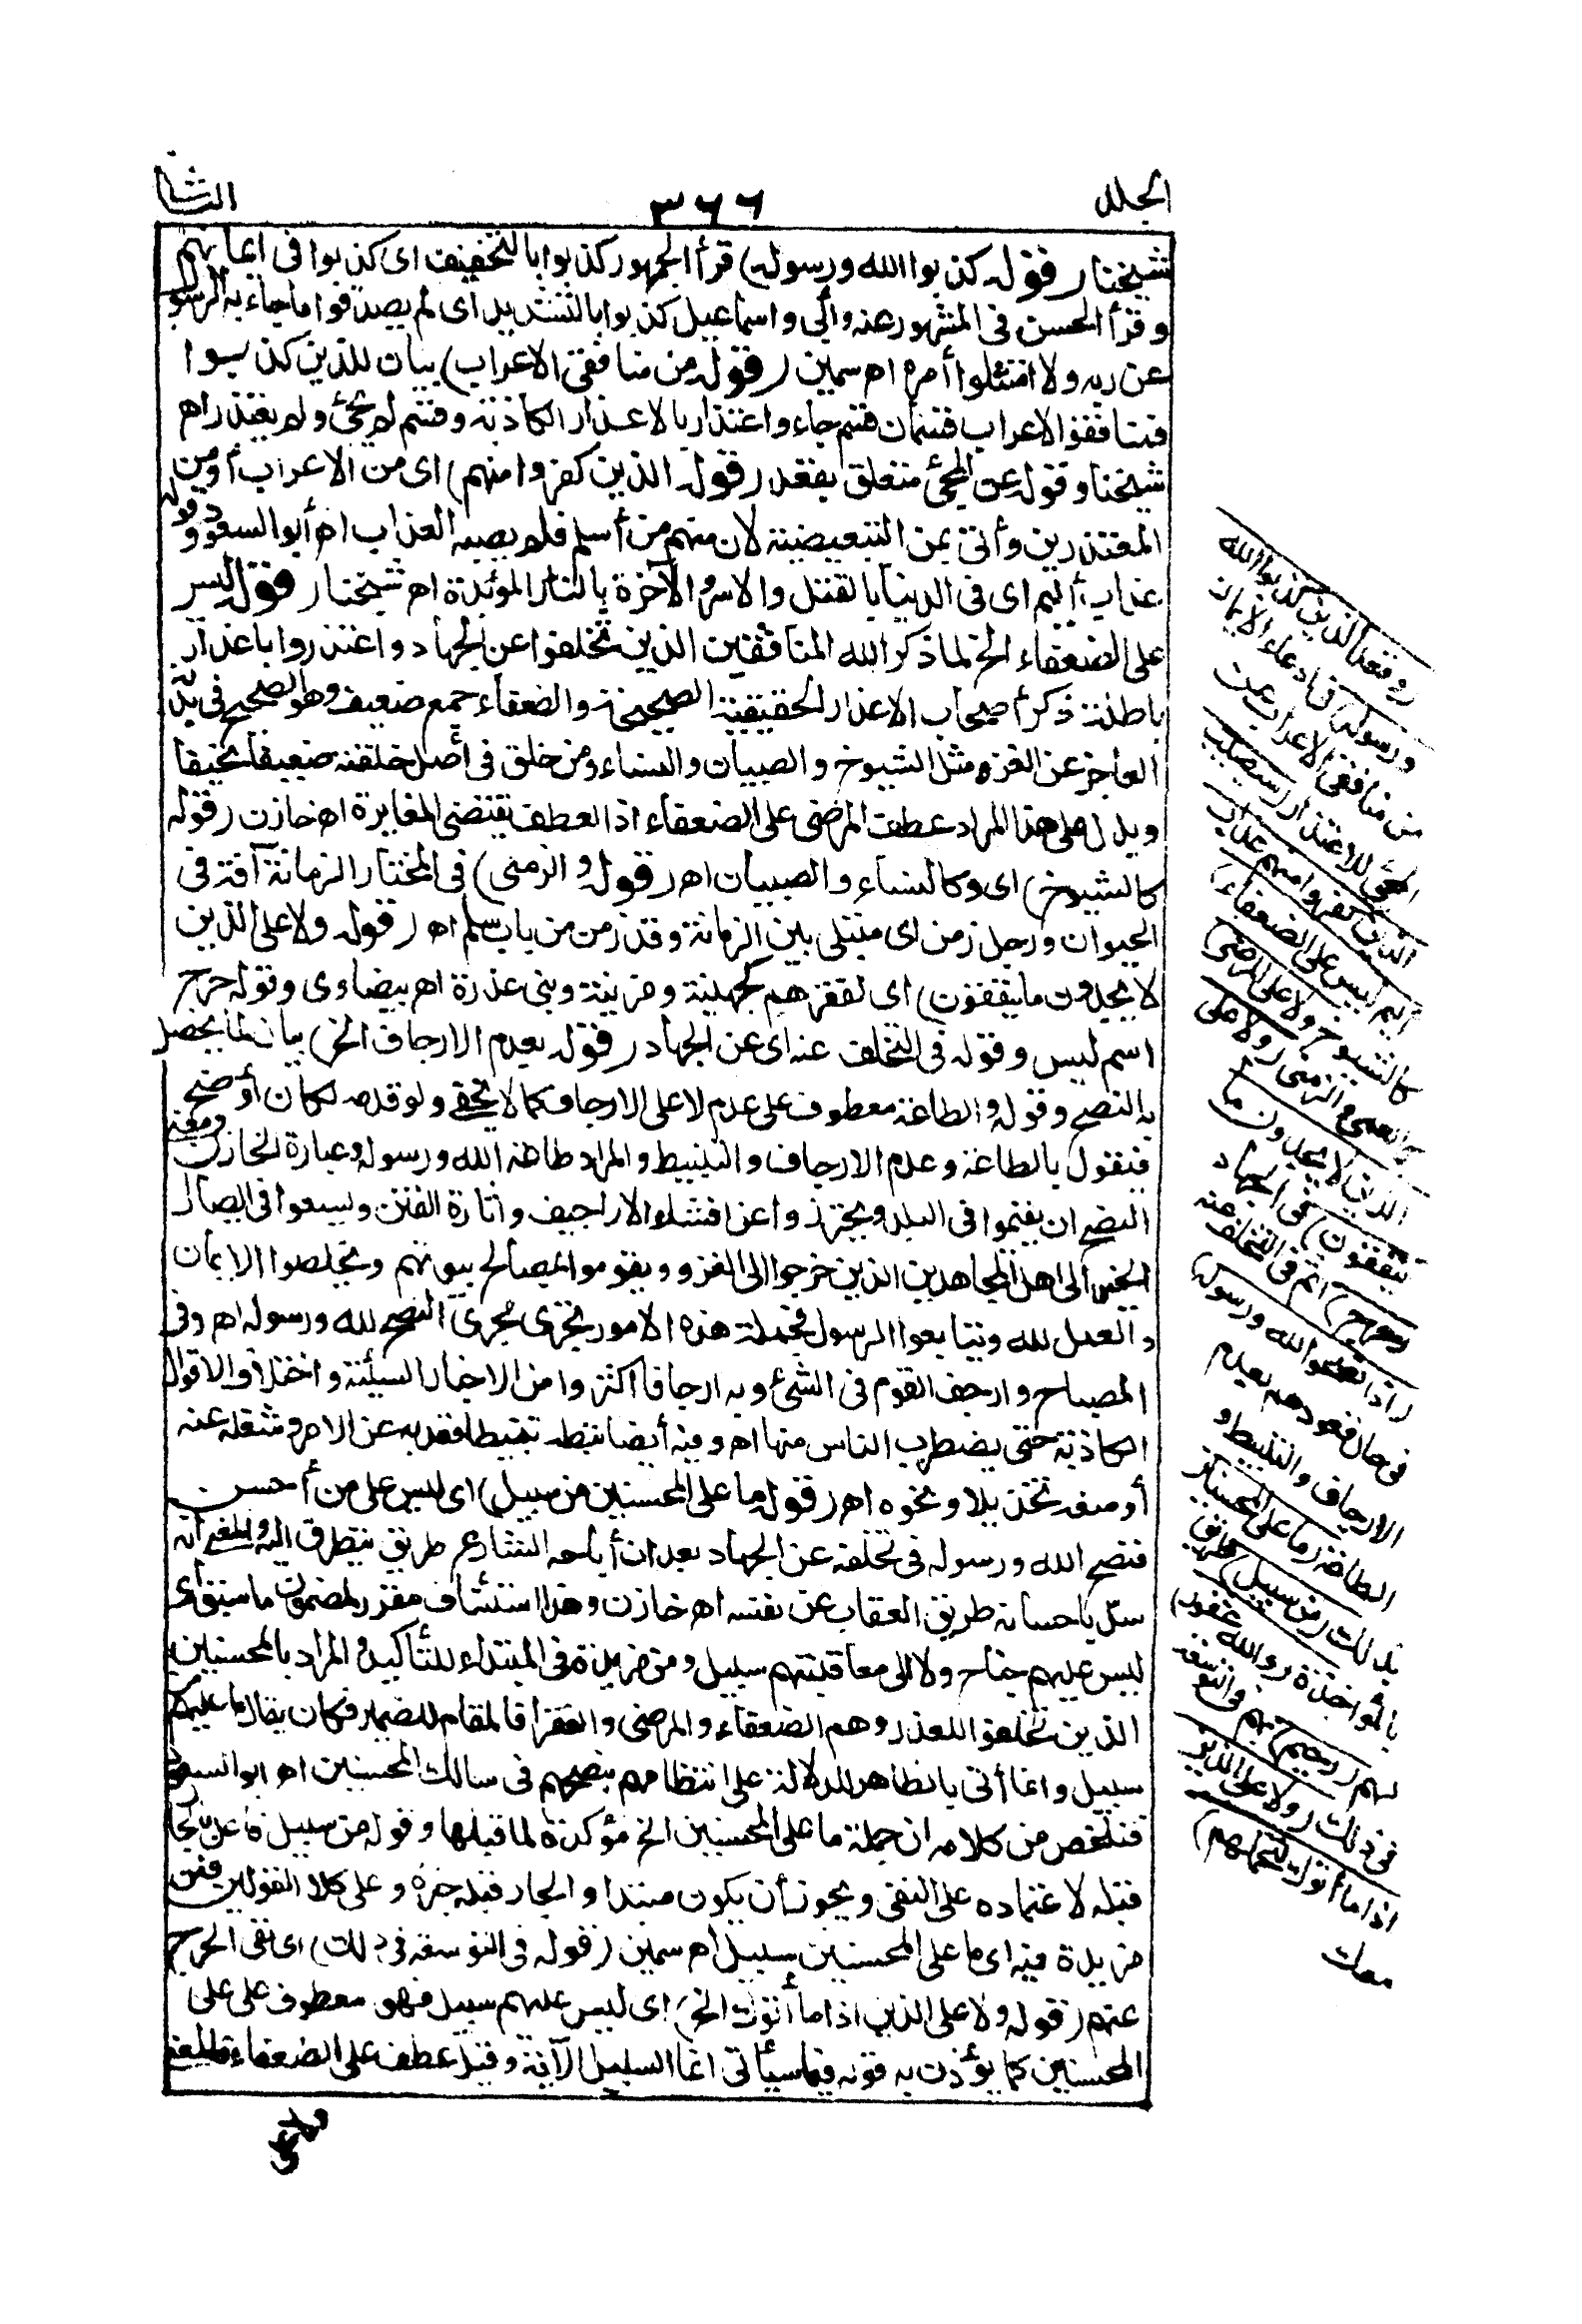 الجلد
٣٦٦
الثانى
شيخنا (قوله كذبوا الله ورسوله) قرأ الجمهور كذبوا بالتخفيف اى كذبوا فى ايمانهم
وقرأ الحسن فى المشهور عنه وأبى واسماعيل كذبوا بالتشديد اى لم يصدقوا ما جاء به الرسول
عن ربه ولا امتثلوا أمره اه سمين (قوله من منافقى الاعراب) بيان للذين كذبوا
فمنافقو الاعراب قسمان قسم جاء واعتذر بالاعذار الكاذبة وقسم لم يجئ ولم يعتذر اه
شيخنا وقوله عن المجئ متعلق بقعد (قوله الذين كفروا منهم) اى من الاعراب أو من
المعتذرين وأتى بمن التبعيضية لان منهم من أسلم فلم يصبه العذاب اه أبو السعود وقوله
عذاب أليم اى فى الدنيا بالقتل والاسر والآخرة بالنار المؤبدة اه شيخنا (قوله ليس
على الضعفاء الخ لما ذكر الله المنافقين الذين تخلفوا عن الجهاد واعتذروا باعذار
باطلة ذكر أصحاب الاعذار الحقيقية الصحيحة والضعفاء جمع ضعيف وهو الصحيح فى بدنه
العاجز عن الغزو مثل الشيوخ والصبيان والنساء ومن خلق فى أصل خلقته ضعيفا نحيفا
ويدل على هذا المراد عطف المرضى على الضعفاء اذ العطف يقتضى المغايرة اه خازن (قوله
كالشيوخ) اى وكالنساء والصبيان اه (قوله والزمنى) فى المختار الزمانة آفة فى
الحيوان ورجل زمن اى مبتلى بين الزمانة وقد زمن من باب سلم اه (قوله ولا على الذين
لا يجدون ما ينفقون) اى لفقرهم كجهينة ومزينة وبنى عذرة اه بيضاوى وقوله حرج
اسم ليس وقوله فى التخلف عنه اى عن الجهاد (قوله بعدم الارجاف الخ) بيان لما يحصل
به النصح وقوله والطاعة معطوف على عدم لا على الارجاف كما لا يخفى ولو قدمه لكان أوضح
فتقول بالطاعة وعدم الارجاف والتثبيط والمراد طاعة الله ورسوله وعبارة الخازن ومعنى
النصح ان يقيموا فى البلد ويحترزوا عن افشاء الاراجيف واثارة الفتن ويسعوا فى ايصال
الخير الى اهل المجاهدين الذين خرجوا الى الغزو ويقوموا بمصالح بيوتهم ويخلصوا الايمان
والعمل لله ويتابعوا الرسول فجملة هذه الامور تجرى مجرى النصح لله ورسوله اه وفى
المصباح وارجف القوم فى الشئ وبه ارجافا اكثروا من الاخبار السيئة واختلاق الاقوال
الكاذبة حتى يضطرب الناس منها اه وفيه أيضا ثبطه تثبيطا قعد به عن الامر وشغله عنه
أو منعه تخذيلا ونحوه اه (قوله ما على المحسنين من سبيل) اى ليس على من أحسن
فنصح الله ورسوله فى تخلفه عن الجهاد بعد ان أباحه الشارع طريق يتطرق اليه والمعنى أنه
سدّ باحسانه طريق العقاب عن نفسه اه خازن وهذا استئناف مقرر لمضمون ما سبق اى
ليس عليهم جناح ولا الى معاقبتهم سبيل ومن مزيدة فى المبتداء للتأكيد والمراد بالمحسنين
الذين تخلفوا للعذر وهم الضعفاء والمرضى والفقراء فالمقام للضمير فكان يقال ما عليهم
سبيل وانما أتى بالظاهر للدلالة على انتظامهم بنصحهم فى سالك المحسنين اه ابو السعود
فتلخص من كلامه ان جملة ما على المحسنين الخ مؤكدة لما قبلها وقوله من سبيل فاعل بالجار
قبله لاعتماده على النفى ويجوز أن يكون مبتدا والجار قبله خبره وعلى كلا القولين فمن
مزيدة فيه اى ما على المحسنين سبيل اه سمين (قوله فى التوسعة فى ذلك) اى نفى الحرج
عنهم (قوله ولا على الذين اذا ما أتوك الخ) اى ليس عليهم سبيل فهو معطوف على على
المحسنين كما يؤذن به قوله فيما سيأتى انما السبيل الآية وقيل عطف على الضعفاء والمعنى
(وقعد الذين كذبوا الله
ورسوله) فى ادعاء الايمان
من منافقى الاعراب عن
المجئ للاعتذار (سيصيب
الذين كفروا منهم عذاب
اليم ليس على الضعفاء)
كالشيوخ (ولا على المرضى)
كالعمى والزمنى (ولا على
الذين لا يجدون ما
ينفقون) فى الجهاد
(حرج) اثم فى التخلف عنه
(اذا نصحوا لله ورسوله)
فى حال قعودهم بعدم
الارجاف والتثبيط و
الطاعة (ما على المحسنين)
بذلك (من سبيل) طريق
بالمؤاخذة (والله غفور)
لهم (رحيم) بهم فى التوسعة
فى ذلك (ولا على الذين
اذا ما أتوك لتحملهم)
معك